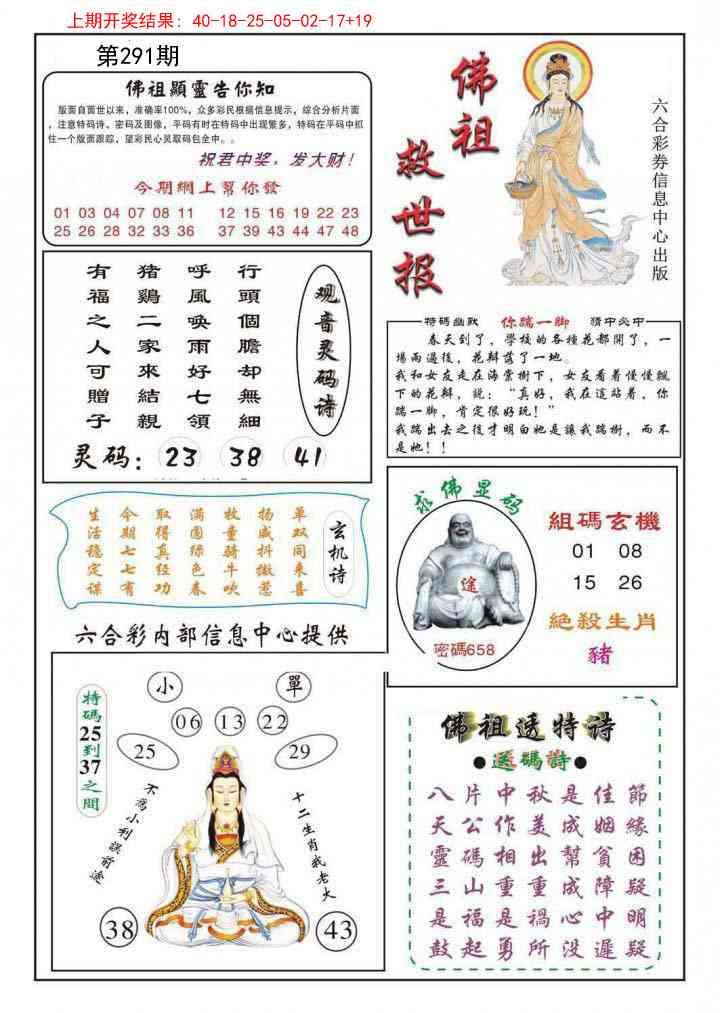 上期开奖结果：40-18-25-05-02-17+19
第291期
佛祖顯靈告你知
版面自面世以来，准确率100%，众多彩民根据信息提示，综合分析片面
，注意特码诗、密码及图像，平码有时在特码中出现繁多，特码在平码中抓
住一个版面跟踪，望彩民心灵取码包全中。。
祝君中奖，发大财！
今期網上幫你發
01 03 04 07 08 11 12 15 16 19 22 23
25 26 28 32 33 36 37 39 43 44 47 48
佛祖
救世报
六合彩券信息中心出版
行頭個膽却無細
呼風喚雨好七領
猪鷄二家來結親
有福之人可贈子
观音灵码诗
灵码：23 38 41
特碼幽默 你踹一脚 猜中必中
春天到了，學校的各種花都開了，一
場雨過後，花瓣落了一地。
我和女友走在海棠樹下，女友看着慢慢飄
下的花瓣，説：“真好，我在這站着，你
踹一脚，肯定很好玩！”
我踹出去之後才明白她是讓我踹樹，而不
是她！！
玄机诗
单双同来喜
扬威抖擞惹
牧童骑牛吹
满园绿色春
取得真经功
今期七七有
生活稳定谋
求佛显码
途
密碼658
組碼玄機
01 08
15 26
絶殺生肖
豬
六合彩内部信息中心提供
特碼25到37之間
小 單
06 13 22
25 29
不爲小利誤前途
十二生肖我老大
38 43
佛祖透特诗
●送碼詩●
八片中秋是佳節
天公作美成姻緣
靈碼相出幫貧困
三山重重成障疑
是福是禍心中明
鼓起勇所没遲疑